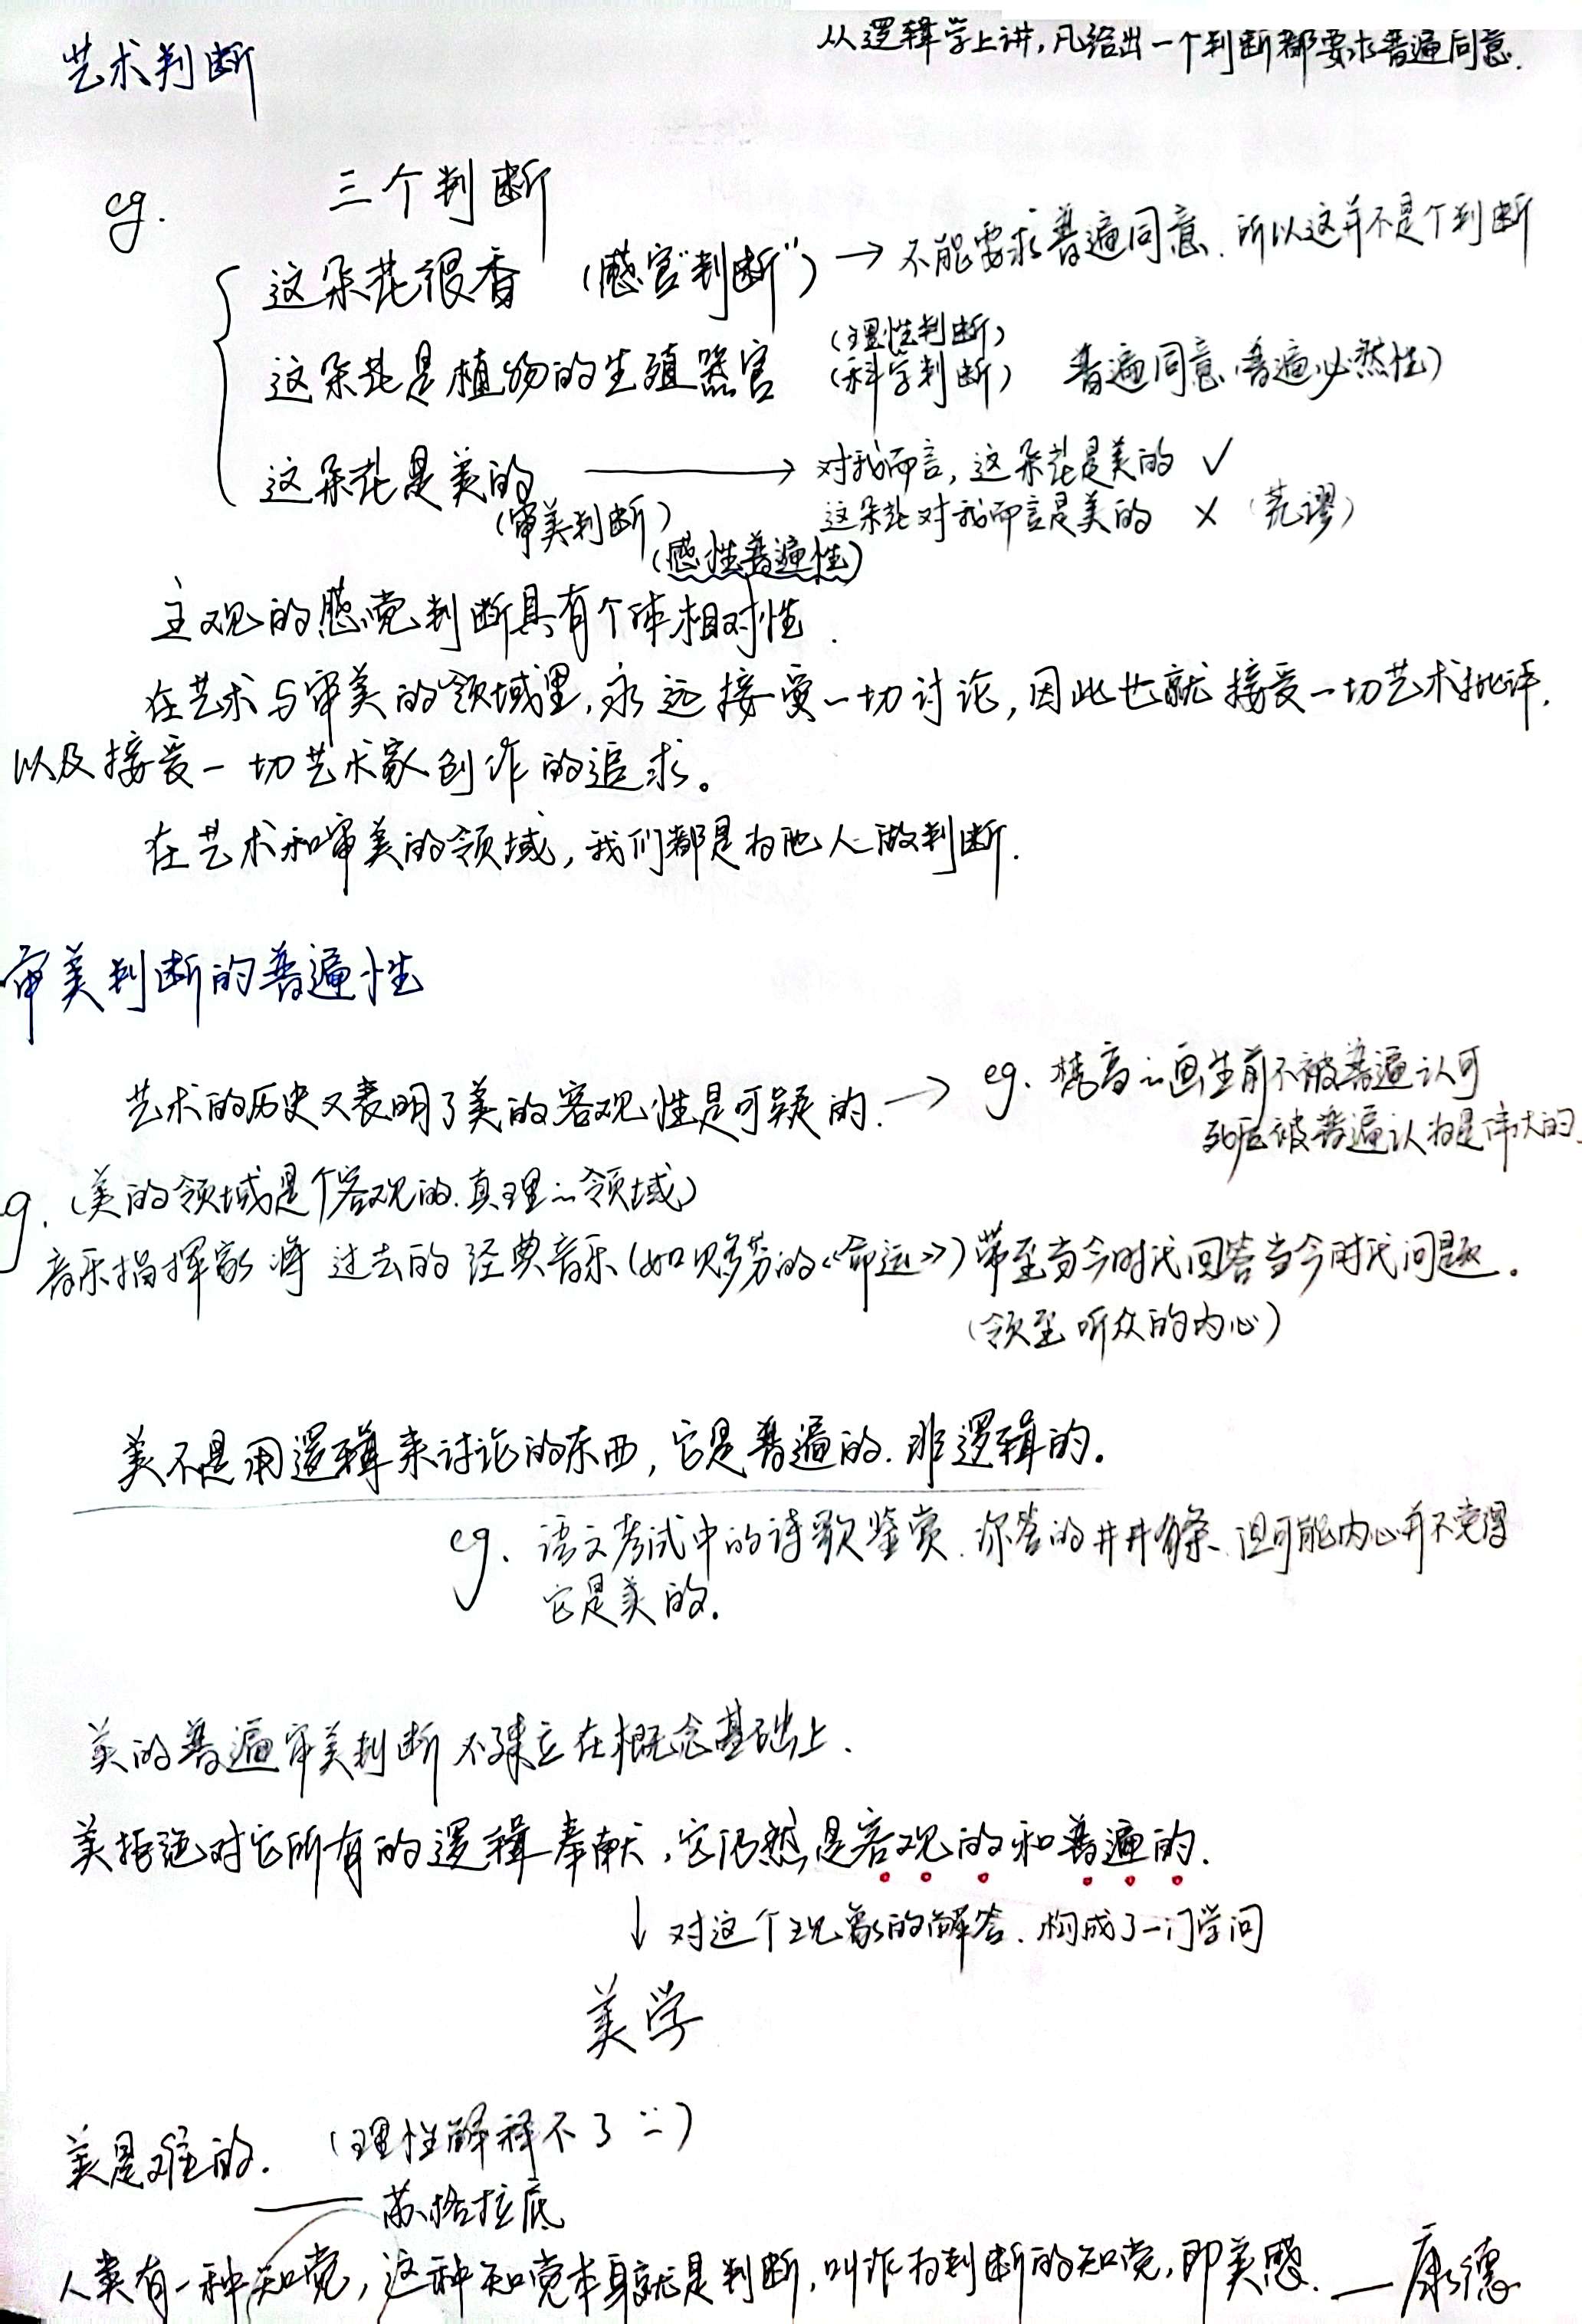 从逻辑学上讲,凡给出一个判断都要求普遍同意.
艺术判断
eg. 三个判断
这朵花很香 (感官"判断") → 不能要求普遍同意.所以这并不是个判断
(理性判断)
这朵花是植物的生殖器官 (科学判断) 普遍同意(普遍必然性)
这朵花是美的 → 对我而言,这朵花是美的 ✓
(审美判断) 这朵花对我而言是美的 × (荒谬)
(感性普遍性)
主观的感觉判断具有个体相对性.
在艺术与审美的领域里,永远接受一切讨论,因此也就接受一切艺术批评.
以及接受一切艺术家创作的追求。
在艺术和审美的领域,我们都是为他人做判断.
审美判断的普遍性
艺术的历史又表明了美的客观性是可疑的. → eg. 梵高∴画生前不被普遍认可
死后被普遍认为是伟大的.
g. (美的领域是个客观的.真理∴领域)
音乐指挥家 将 过去的经典音乐(如贝多芬的《命运》)带至当今时代回答当今时代问题。
(领至听众的内心)
美不是用逻辑来讨论的东西,它是普遍的.非逻辑的。
eg. 语文考试中的诗歌鉴赏.你答的井井有条.但可能内心并不觉得
它是美的.
美的普遍审美判断不建立在概念基础上.
美拒绝对它所有的逻辑奉献,它仍然是客观的和普遍的.
↓ 对这个现象的解答.构成了一门学问
美学
美是难的. (理性解释不了∵)
—— 苏格拉底
人类有一种知觉,这种知觉本身就是判断,叫作为判断的知觉,即美感. —康德